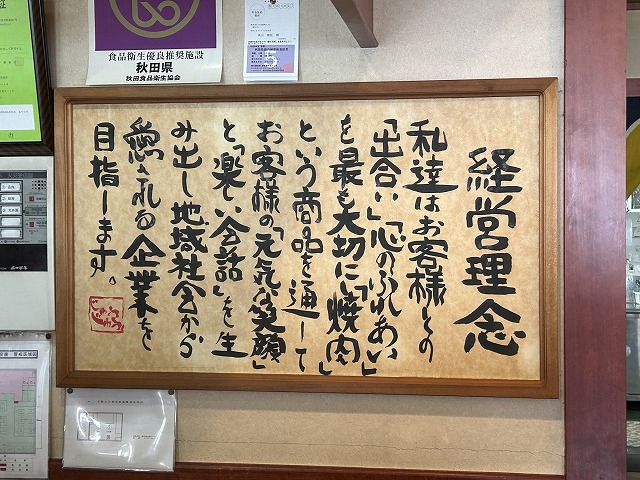 経営理念
私達はお客様との
「出合い」「心のふれあい」
を最も大切にし「焼肉」
という商品を通して
お客様の「元気な笑顔」
と「楽しい会話」を生
み出し地域社会から
愛される企業を
目指します。
食品衛生優良推奨施設
秋田県
秋田食品衛生協会